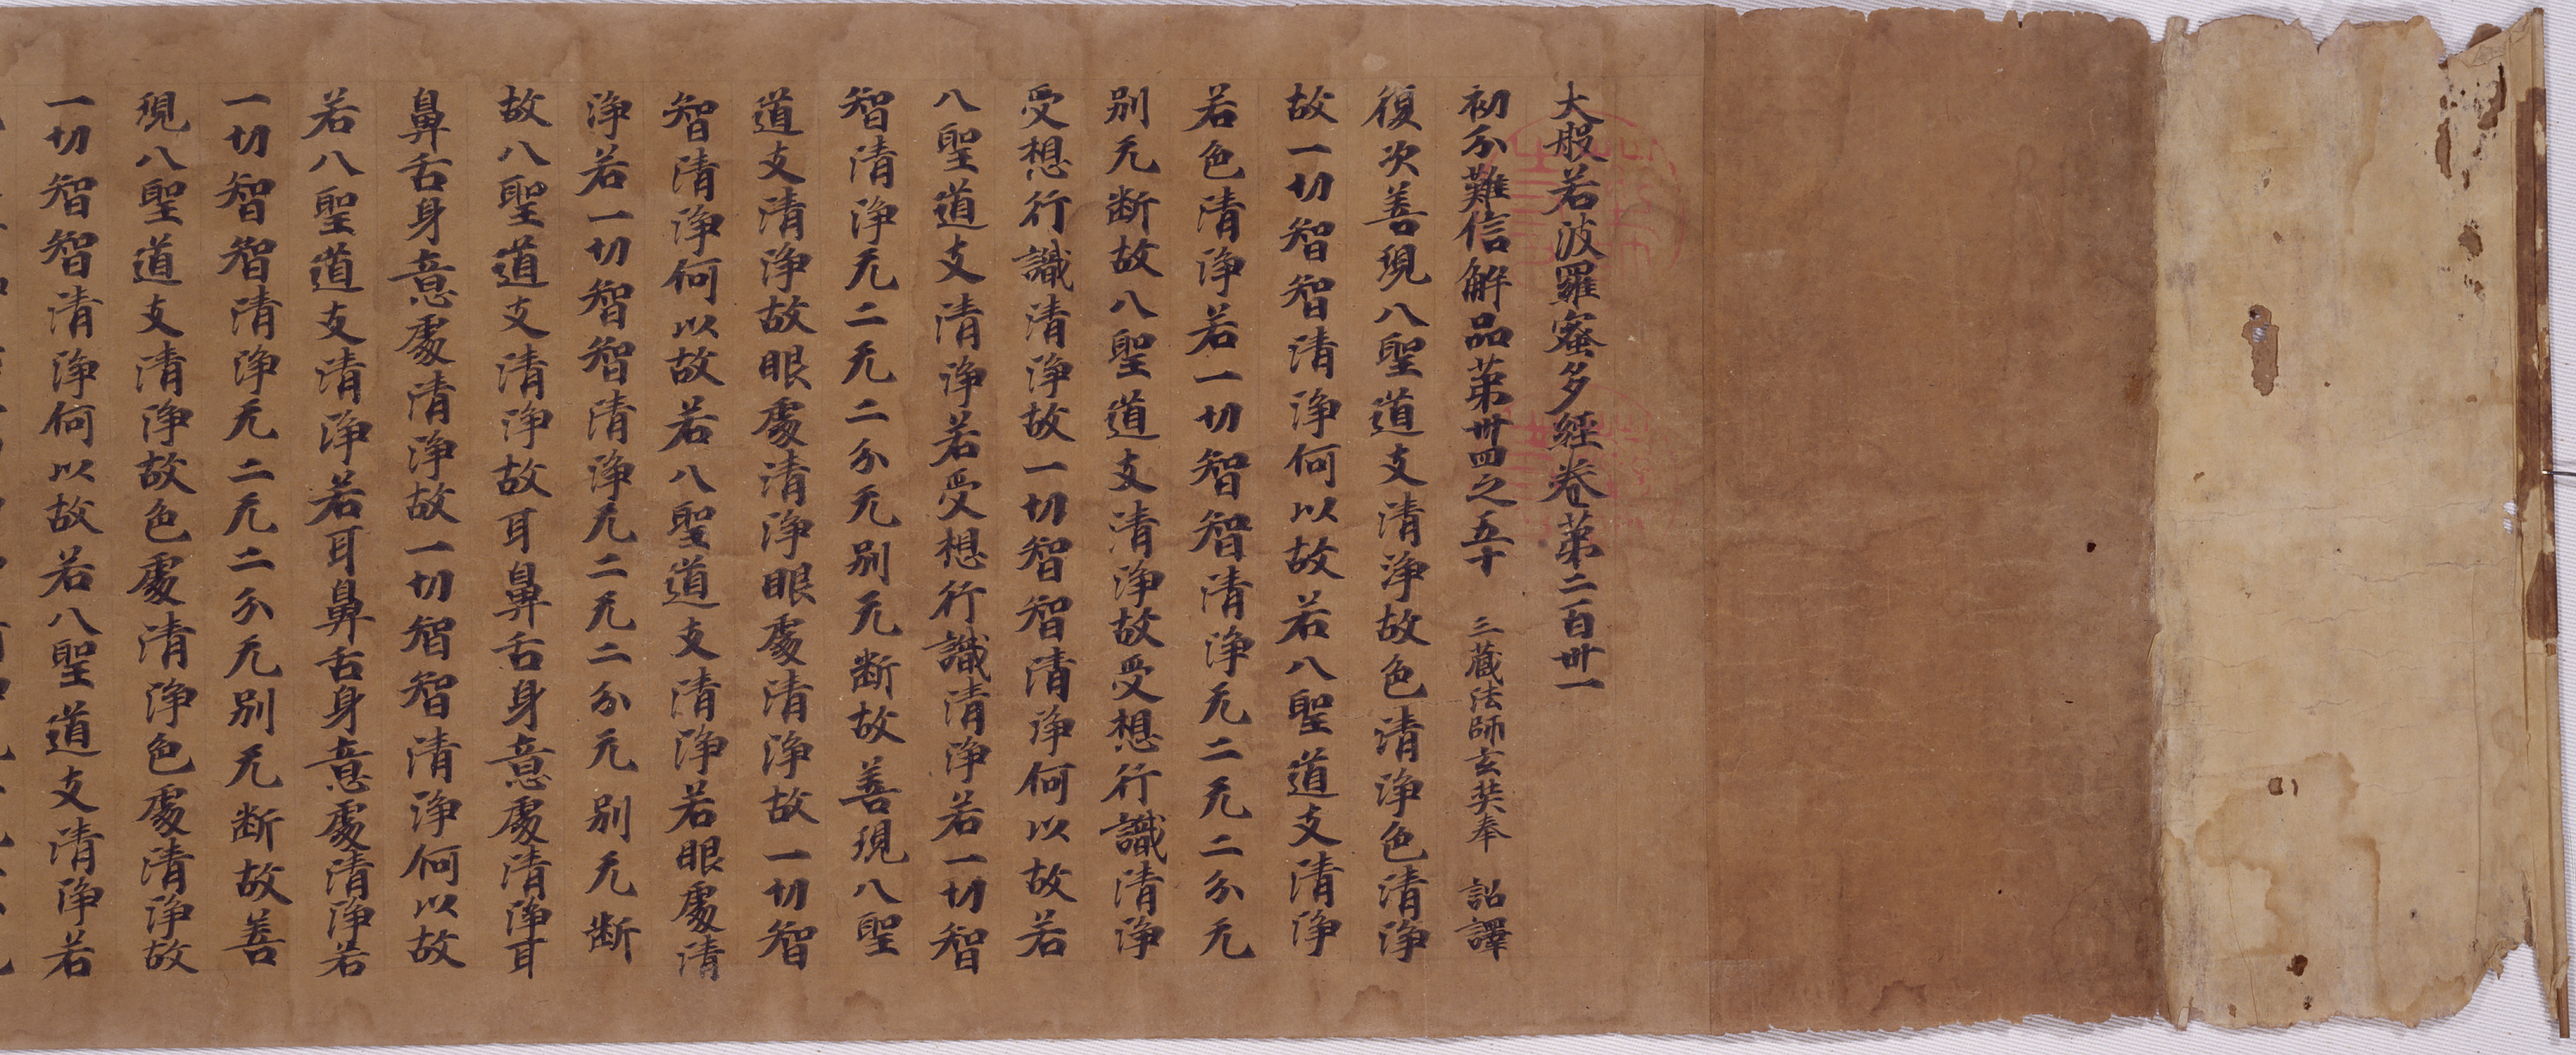 大般若波羅蜜多經卷第二百卅一
初分難信解品第卅四之五十 三藏法師玄奘奉 詔譯
復次善現八聖道支清淨故色清淨色清淨
故一切智智清淨何以故若八聖道支清淨
若色清淨若一切智智清淨无二无二分无
別无斷故八聖道支清淨故受想行識清淨
受想行識清淨故一切智智清淨何以故若
八聖道支清淨若受想行識清淨若一切智
智清淨无二无二分无別无斷故善現八聖
道支清淨故眼處清淨眼處清淨故一切智
智清淨何以故若八聖道支清淨若眼處清
淨若一切智智清淨无二无二分无別无斷
故八聖道支清淨故耳鼻舌身意處清淨耳
鼻舌身意處清淨故一切智智清淨何以故
若八聖道支清淨若耳鼻舌身意處清淨若
一切智智清淨无二无二分无別无斷故善
現八聖道支清淨故色處清淨色處清淨故
一切智智清淨何以故若八聖道支清淨若